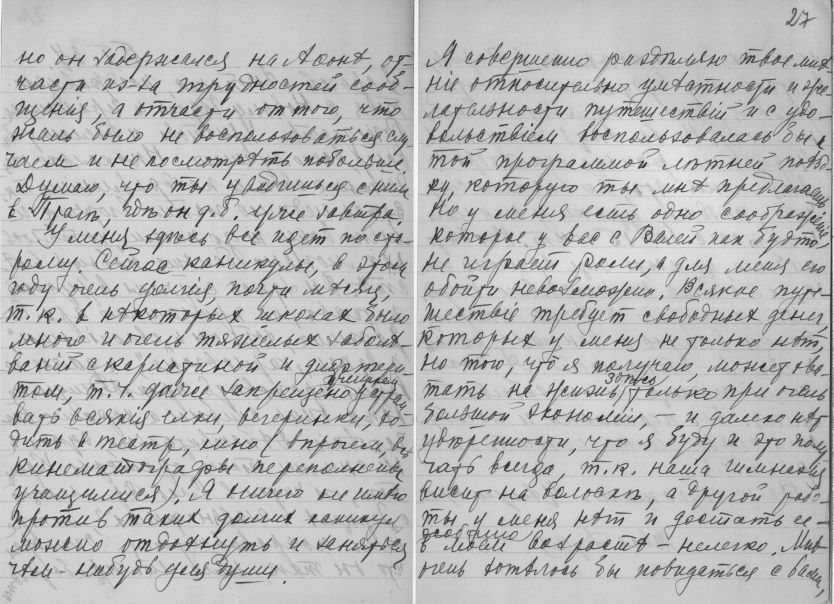 но он задержался на Афонѣ, от-
части из-за трудностей сооб-
щенія, а отчасти оттого, что
жаль было не воспользоваться слу-
чаем и не посмотрѣть побольше.
Думаю, что ты увидишься с ним
в Прагѣ, гдѣ он д.б. уже завтра.
У меня здѣсь все идет по ста-
рому. Сейчас каникулы, в этом
году очень долгія, почти мѣсяц,
т.к. в нѣкоторых школах было
много и очень тяжелых заболѣ-
ваній скарлатиной и дифтери-
том, т.ч. даже запрещено учащимся устраи-
вать всякія елки, вечеринки, хо-
дить в театр, кино (впрочем, всѣ
кинематографы переполнены
учащимися). Я ничего не имѣю
против таких долгих каникул
можно отдохнуть и заняться
чѣм-нибудь для души.
27
Я совершенно раздѣляю твое мнѣ-
ніе относительно умѣстности и же-
лательности путешествій и с удо-
вольствіем воспользовалась бы
той программой лѣтней поѣзд-
ки, которую ты мнѣ предлагаешь.
Но у меня есть одно соображеніе,
которое у вас с Валей как будто
не играет роли, а для меня его
обойти невозможно. Всякое путе-
шествіе требует свободных денег,
которых у меня не только нѣт,
но того, что я получаю, может хва-
тать на жизнь здѣсь только при очень
большой экономіи, – и далеко нѣт
увѣренности, что я буду и это полу-
чать всегда, т.к. наша гимназія
висит на волоскѣ, а другой рабо-
ты у меня нѣт и достать ее –
особенно
в моем возрастѣ – нелегко. Мнѣ
очень хотѣлось бы повидаться с вами,